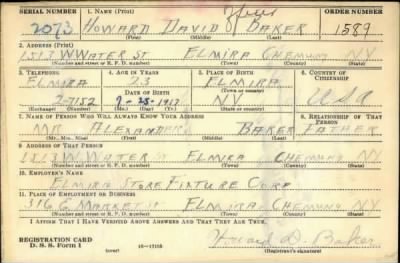 SERIAL NUMBER 1. NAME (Print) ORDER NUMBER
2073 HOWARD DAVID BAKER 1589
(First) (Middle) (Last)
2. ADDRESS (Print)
1513 W WATER ST ELMIRA CHEMUNG NY
(Number and street or R. F. D. number) (Town) (County) (State)
3. TELEPHONE 4. AGE IN YEARS 5. PLACE OF BIRTH 6. COUNTRY OF CITIZENSHIP
ELMIRA 23 ELMIRA
DATE OF BIRTH (Town or county)
2-7152 7-25-1917 NY USA
(Exchange) (Number) (Mo.) (Day) (Yr.) (State or country)
7. NAME OF PERSON WHO WILL ALWAYS KNOW YOUR ADDRESS 8. RELATIONSHIP OF THAT PERSON
MR ALEXANDER BAKER FATHER
(Mr., Mrs., Miss) (First) (Middle) (Last)
9. ADDRESS OF THAT PERSON
1513 W. WATER ST ELMIRA CHEMUNG NY
(Number and street or R. F. D. number) (Town) (County) (State)
10. EMPLOYER'S NAME
ELMIRA STORE FIXTURE CORP
11. PLACE OF EMPLOYMENT OR BUSINESS
316 E MARKET ST ELMIRA CHEMUNG NY
(Number and street or R. F. D. number) (Town) (County) (State)
I AFFIRM THAT I HAVE VERIFIED ABOVE ANSWERS AND THAT THEY ARE TRUE.
REGISTRATION CARD Howard D. Baker
D. S. S. Form 1 (over) 16-17105 (Registrant's signature)